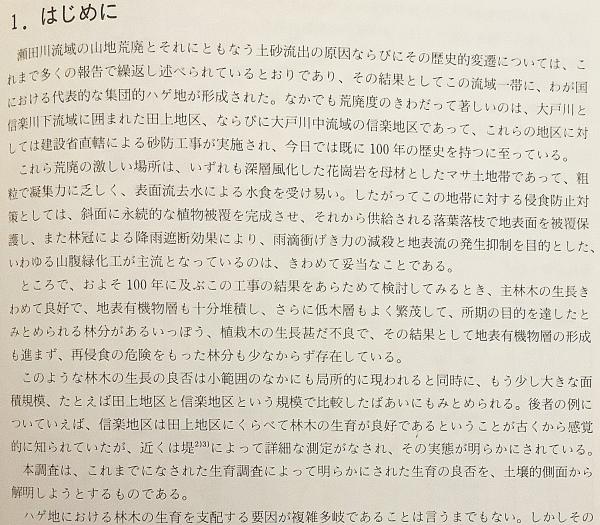 1. はじめに
瀬田川流域の山地荒廃とそれにともなう土砂流出の原因ならびにその歴史的変遷については、こ
れまで多くの報告で繰返し述べられているとおりであり、その結果としてこの流域一帯に、わが国
における代表的な集団的ハゲ地が形成された。なかでも荒廃度のきわだって著しいのは、大戸川と
信楽川下流域に囲まれた田上地区、ならびに大戸川中流域の信楽地区であって、これらの地区に対
しては建設省直轄による砂防工事が実施され、今日では既に100年の歴史を持つに至っている。
これら荒廃の激しい場所は、いずれも深層風化した花崗岩を母材としたマサ土地帯であって、粗
粒で凝集力に乏しく、表面流去水による水食を受け易い。したがってこの地帯に対する侵食防止対
策としては、斜面に永続的な植物被覆を完成させ、それから供給される落葉落枝で地表面を被覆保
護し、また林冠による降雨遮断効果により、雨滴衝げき力の減殺と地表流の発生抑制を目的とした、
いわゆる山腹緑化工が主流となっているのは、きわめて妥当なことである。
ところで、およそ100年に及ぶこの工事の結果をあらためて検討してみるとき、主林木の生長き
わめて良好で、地表有機物層も十分堆積し、さらに低木層もよく繁茂して、所期の目的を達したと
みとめられる林分があるいっぽう、植栽木の生長甚だ不良で、その結果として地表有機物層の形成
も進まず、再侵食の危険をもった林分も少なからず存在している。
このような林木の生長の良否は小範囲のなかにも局所的に現われると同時に、もう少し大きな面
積規模、たとえば田上地区と信楽地区という規模で比較したばあいにもみとめられる。後者の例に
ついていえば、信楽地区は田上地区にくらべて林木の生育が良好であるということが古くから感覚
的に知られていたが、近くは堤2)3)によって詳細な測定がなされ、その実態が明らかにされている。
本調査は、これまでになされた生育調査によって明らかにされた生育の良否を、土壌的側面から
解明しようとするものである。
ハゲ地における林木の生育を支配する要因が複雑多岐であることは言うまでもない。しかしその